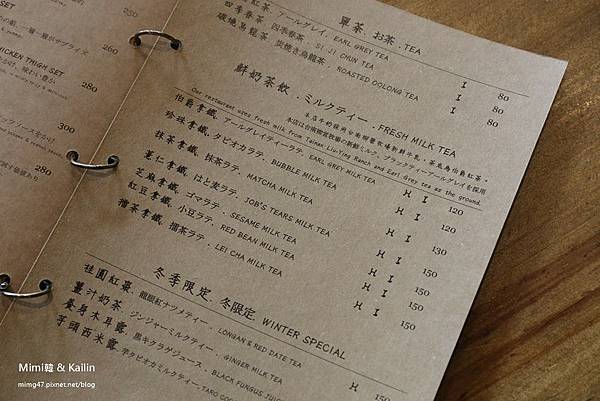 單茶．お茶．TEA
紅茶．アールグレイ．EARL GREY TEA I 80
四季春茶．四季春茶．SI JI CHUN TEA I 80
碳燒烏龍茶．炭焼き烏龍茶．ROASTED OOLONG TEA I 80
鮮奶茶飲．ミルクティー．FRESH MILK TEA
Our restaurant uses fresh milk from Tainan Liu-Ying Ranch and Earl Grey tea as the ground.
伯爵拿鐵．アールグレイティーラテ．EARL GREY MILK TEA H I 120
珍珠拿鐵．タピオカラテ．BUBBLE MILK TEA H I 120
抹茶拿鐵．抹茶ラテ．MATCHA MILK TEA H I 130
薏仁拿鐵．はと麦ラテ．JOB'S TEARS MILK TEA H I 150
芝麻拿鐵．ゴマラテ．SESAME MILK TEA H I 150
紅豆拿鐵．小豆ラテ．RED BEAN MILK TEA H I 150
擂茶拿鐵．擂茶ラテ．LEI CHA MILK TEA H I 150
冬季限定．冬限定．WINTER SPECIAL
桂圓紅棗．龍眼紅ナツメティー．LONGAN & RED DATE TEA H 150
薑汁奶茶．ジンジャーミルクティー．GINGER MILK TEA
養身木耳露．黒キクラゲジュース．BLACK FUNGUS JUICE
芋頭西米露．芋タピオカミルクティー．TARO
260
280
CHICKEN THIGH SET
280
260
300
280
Mimi韓 & Kailin
mimg47.pixnet.net/blog